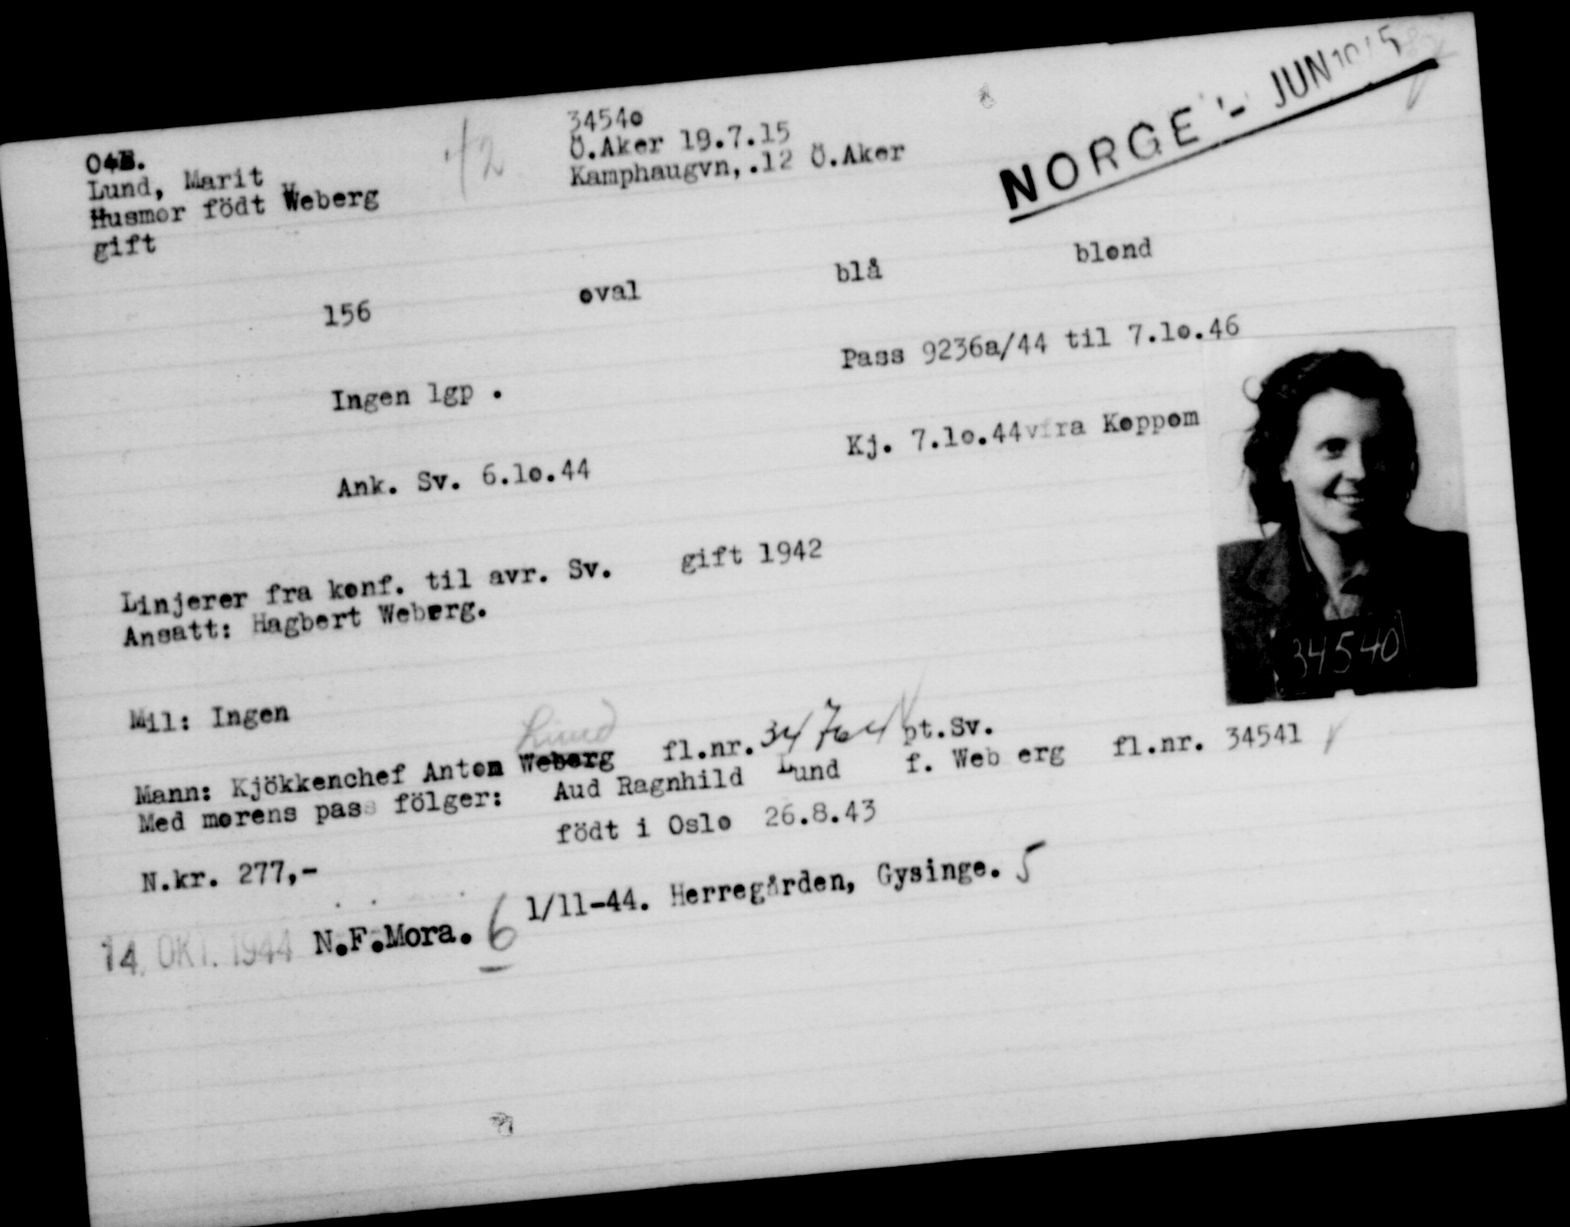 34540
04B.
Ö.Aker 19.7.15
NORGE - JUN
Lund, Marit
Kamphaugvn,.12 Ö.Aker
42
Husmor födt Weberg
gift
156 oval blå blond
Ingen lgp .
Pass 9236a/44 til 7.10.46
Ank. Sv. 6.10.44
Kj. 7.10.44 fra Koppom
Linjerer fra konf. til avr. Sv. gift 1942
Ansatt: Hagbert Weberg.
34540
Mil: Ingen
Lund
Mann: Kjökkenchef Anton Weberg fl.nr. 34764 pt.Sv.
Med morens pass fölger: Aud Ragnhild Lund f. Web erg fl.nr. 34541
födt i Oslo 26.8.43
N.kr. 277,-
14. OKT. 1944 N.F.Mora. 6 1/11-44. Herregården, Gysinge. 5